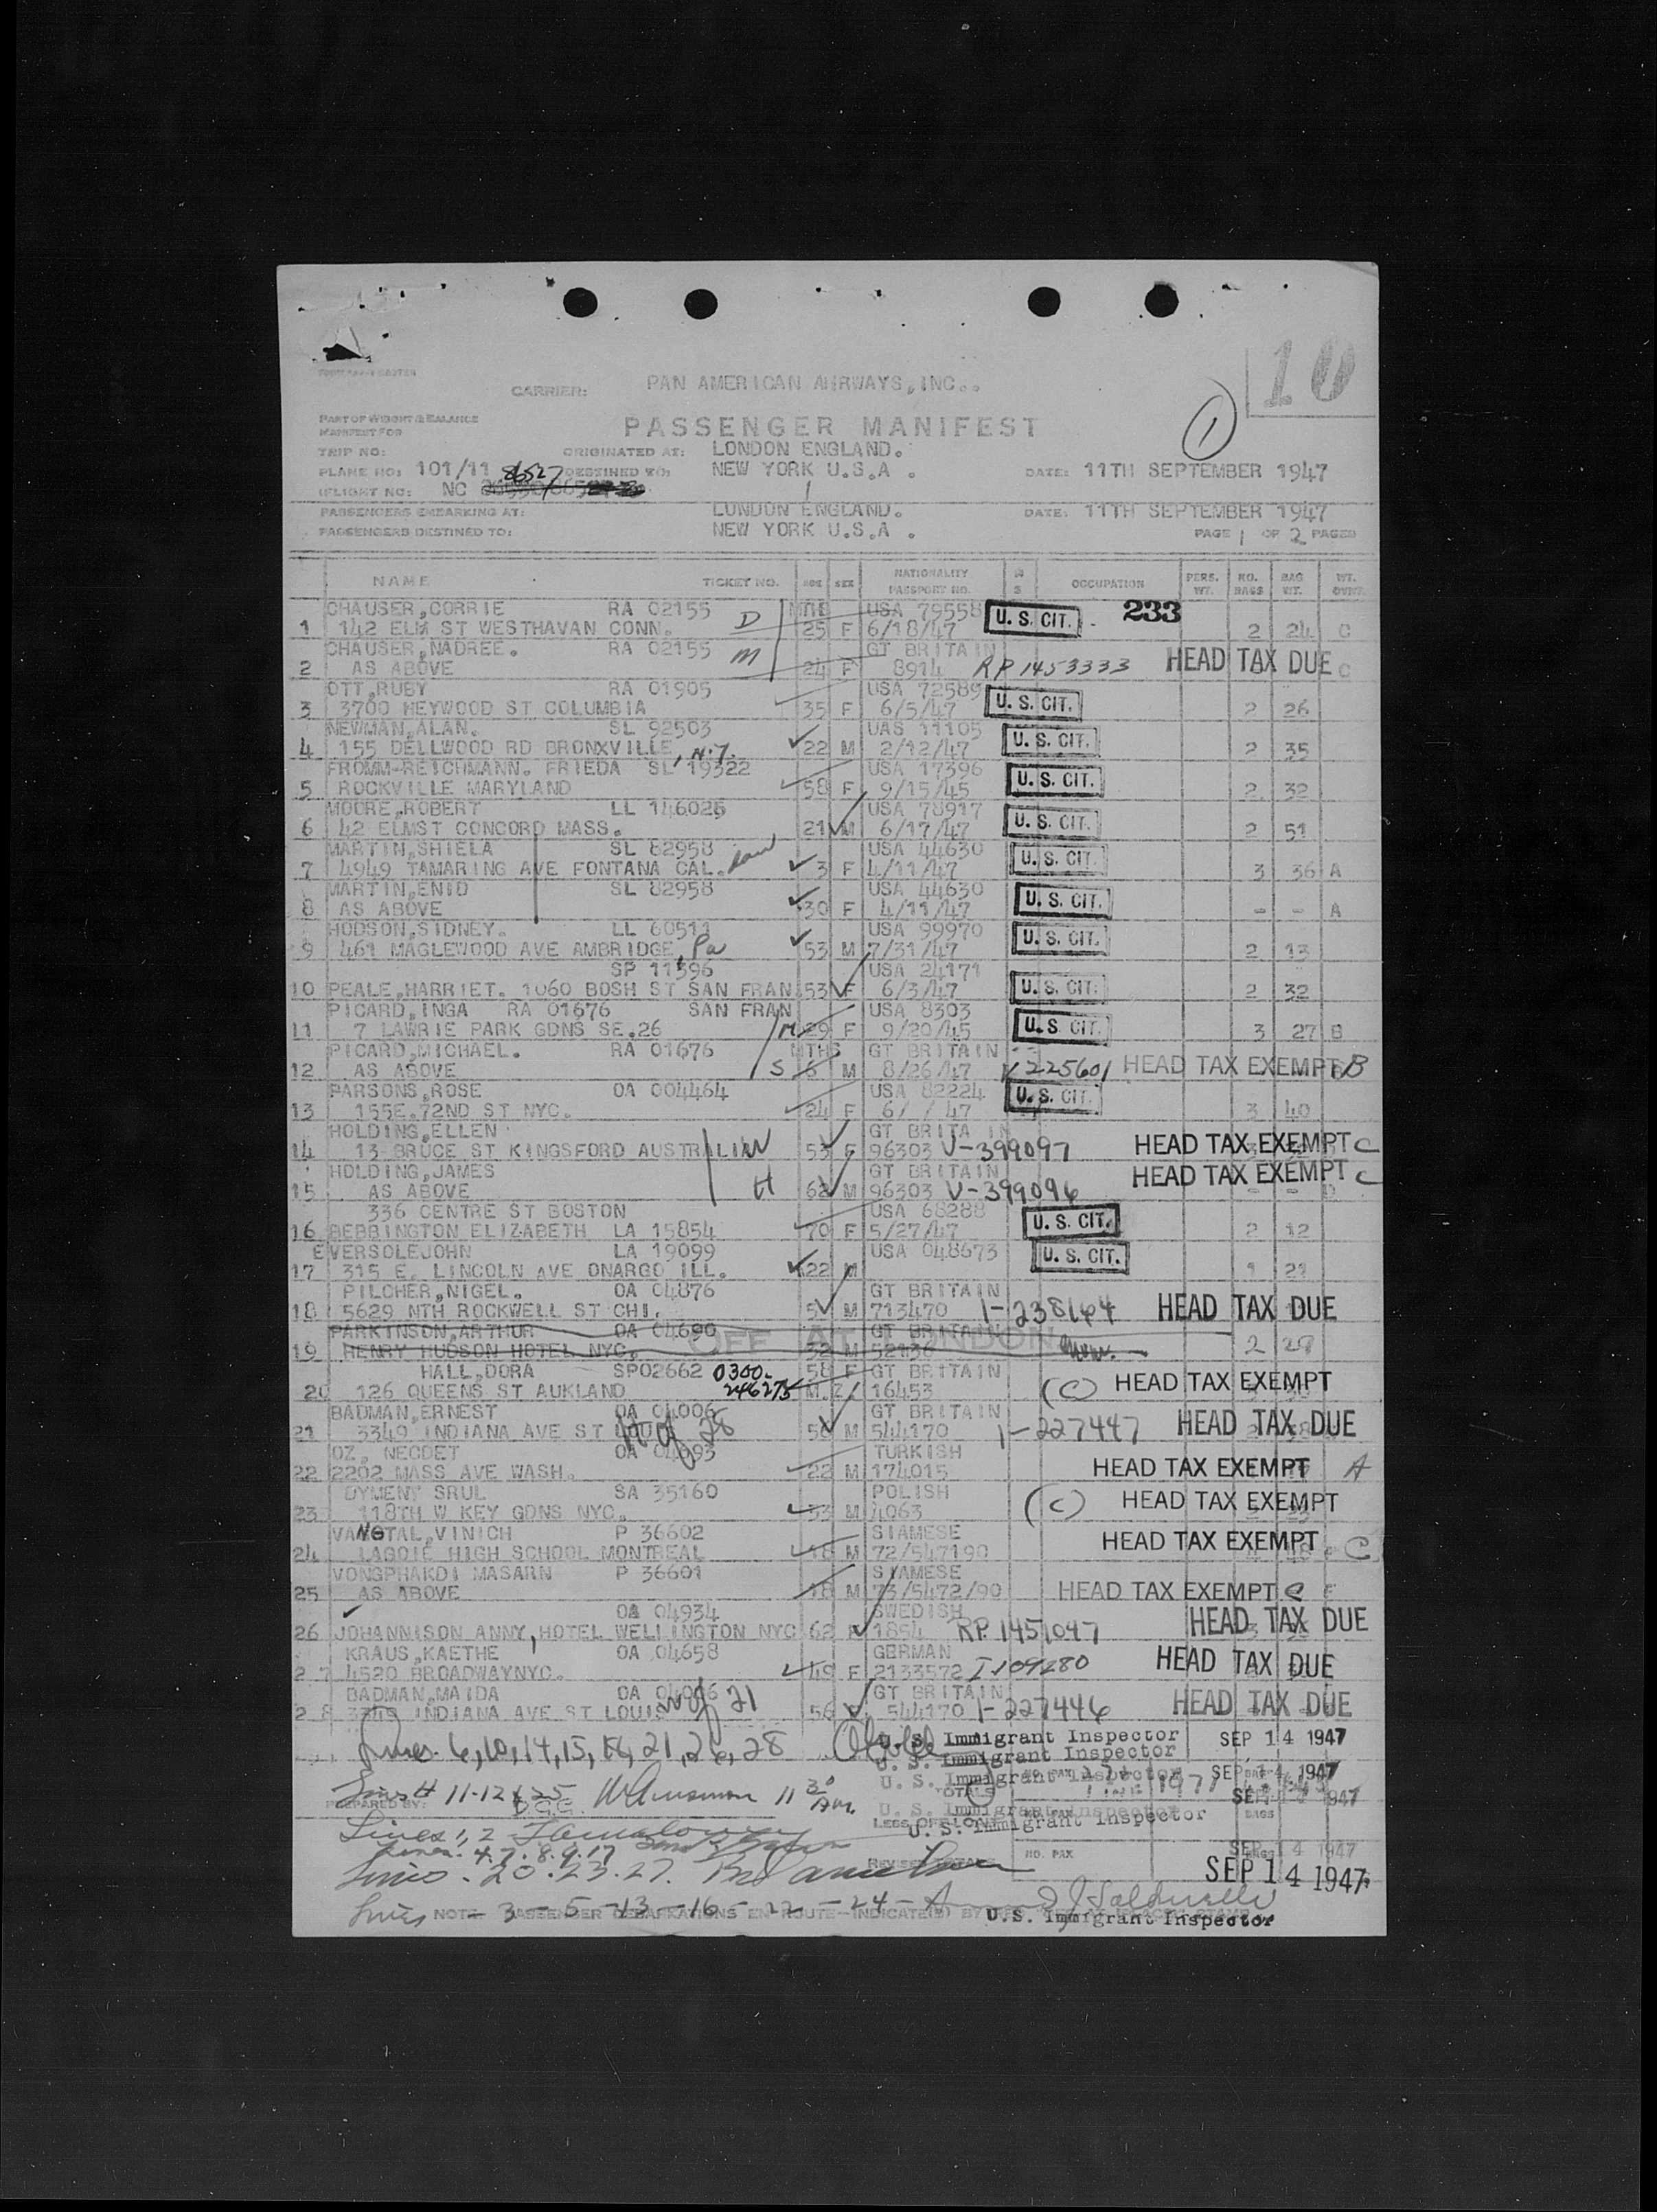 10
CARRIER: PAN AMERICAN AIRWAYS, INC..
PART OF WEIGHT & BALANCE
MANIFEST FOR
PASSENGER MANIFEST
1
TRIP NO: ORIGINATED AT: LONDON ENGLAND.
PLANE NO: 101/11 86527 DESTINED TO: NEW YORK U.S.A . DATE: 11TH SEPTEMBER 1947
FLIGHT NO: NC
PASSENGERS EMBARKING AT: LONDON ENGLAND. DATE: 11TH SEPTEMBER 1947
PASSENGERS DESTINED TO: NEW YORK U.S.A . PAGE 1 OF 2 PAGES
NAME TICKET NO. AGE SEX NATIONALITY PASSPORT NO. OCCUPATION PERS. WT. NO. BAGS BAG WT. WT. OVER
CHAUSER,CORRIE RA 02155 D MTHS USA 79558 U. S. CIT. 233
1 142 ELM ST WESTHAVAN CONN. 25 F 6/18/47 2 24 C
CHAUSER,NADREE. RA 02155 M GT BRITAIN
2 AS ABOVE 24 F 8914 RP 1453333 HEAD TAX DUE C
OTT,RUBY RA 01905 USA 72589 U. S. CIT.
3 3700 HEYWOOD ST COLUMBIA 35 F 6/5/47 2 26
NEWMAN,ALAN. SL 92503 UAS 11105 U. S. CIT.
4 155 DELLWOOD RD BRONXVILLE, N.Y. 22 M 2/12/47 2 35
FROMM-REICHMANN. FRIEDA SL 19322 USA 17396 U. S. CIT.
5 ROCKVILLE MARYLAND 58 F 9/15/45 2 32
MOORE,ROBERT LL 146026 USA 78917 U. S. CIT.
6 42 ELMST CONCORD MASS. 21 M 6/17/47 2 51
MARTIN,SHIELA SL 82958 USA 44630 U. S. CIT.
7 4949 TAMARING AVE FONTANA CAL. 3 F 4/11/47 3 36 A
MARTIN,ENID SL 82958 USA 44630 U. S. CIT.
8 AS ABOVE 30 F 4/11/47 - - A
HODSON,SIDNEY. LL 60511 USA 99970 U. S. CIT.
9 461 MAGLEWOOD AVE AMBRIDGE, Pa 53 M 7/31/47 2 13
SP 11396 USA 24171 U. S. CIT.
10 PEALE,HARRIET. 1060 BOSH ST SAN FRAN 53 F 6/3/47 2 32
PICARD,INGA RA 01676 SAN FRAN USA 8303 U. S. CIT.
11 7 LAWRIE PARK GDNS SE.26 M 29 F 9/20/45 3 27 B
PICARD,MICHAEL. RA 01676 MTHS GT BRITAIN
12 AS ABOVE S 6 M 8/26/47 V 225601 HEAD TAX EXEMPT B
PARSONS,ROSE OA 004464 USA 82224 U. S. CIT.
13 155E.72ND ST NYC. 24 F 6/ / 47 3 40
HOLDING,ELLEN GT BRITAIN
14 13 BRUCE ST KINGSFORD AUSTRALIA W 53 F 96303 V-399097 HEAD TAX EXEMPT C
HOLDING,JAMES GT BRITAIN HEAD TAX EXEMPT C
15 AS ABOVE H 62 M 96303 V-399096
336 CENTRE ST BOSTON USA 68288 U. S. CIT.
16 BEBBINGTON ELIZABETH LA 15854 70 F 5/27/47 2 12
EVERSOLEJOHN LA 19099 USA 048673 U. S. CIT.
17 315 E. LINCOLN AVE ONARGO ILL. 22 M 1 21
PILCHER,NIGEL. OA 04876 GT BRITAIN
18 5629 NTH ROCKWELL ST CHI. 5 M 713470 1-238164 HEAD TAX DUE
PARKINSON,ARTHUR OA 04690 OFF AT LONDON GT BRITAIN
19 HENRY HUDSON HOTEL NYC. 32 M 52136 2 28
HALL,DORA SP02662 0300- 58 F GT BRITAIN
20 126 QUEENS ST AUKLAND 246275 M.Z. 16453 (C) HEAD TAX EXEMPT
BADMAN,ERNEST OA 04006 GT BRITAIN
21 3349 INDIANA AVE ST 28 56 M 544170 1-227447 HEAD TAX DUE
OZ, NECDET OA 04093 TURKISH
22 2202 MASS AVE WASH. 22 M 174015 HEAD TAX EXEMPT A
DYMENT SRUL SA 35160 POLISH
23 118TH W KEY GDNS NYC. 33 M 4063 (C) HEAD TAX EXEMPT
VANGTAL,VINICH P 36602 SIAMESE
24 LAGOIE HIGH SCHOOL MONTREAL 18 M 72/547190 HEAD TAX EXEMPT C
VONGPHAKDI MASARN P 36601 SIAMESE
25 AS ABOVE 18 M 73/5472/90 HEAD TAX EXEMPT C
OA 04934 SWEDISH
26 JOHANNISON ANNY, HOTEL WELLINGTON NYC 62 F 1854 RP 1451047 HEAD TAX DUE
KRAUS,KAETHE OA 04658 GERMAN
27 4520 BROADWAYNYC. 49 F 2133572 I 109280 HEAD TAX DUE
BADMAN,MAIDA OA 04006 GT BRITAIN
28 3349 INDIANA AVE ST LOUIS 21 56 544170 1-227446 HEAD TAX DUE
Lines. 6,10,14,15,18,21,26,28 U. S. Immigrant Inspector SEP 14 1947
U. S. Immigrant Inspector
U. S. Immigrant Inspector SEP 14 1947
Lines # 11-12 & 25 TOTALS SEP 14 1947
PREPARED BY:
U. S. Immigrant Inspector
U. S. Immigrant Inspector
Lines 1, 2
Lines. 4.7.8.9.17 SEP 14 1947
Lines. 20.23.27. REVISED TOTALS NO. PAX SEP 14 1947
Lines NOTE 3 - 5 -13 -16 - 22 - 24 - A
U.S. Immigrant Inspector